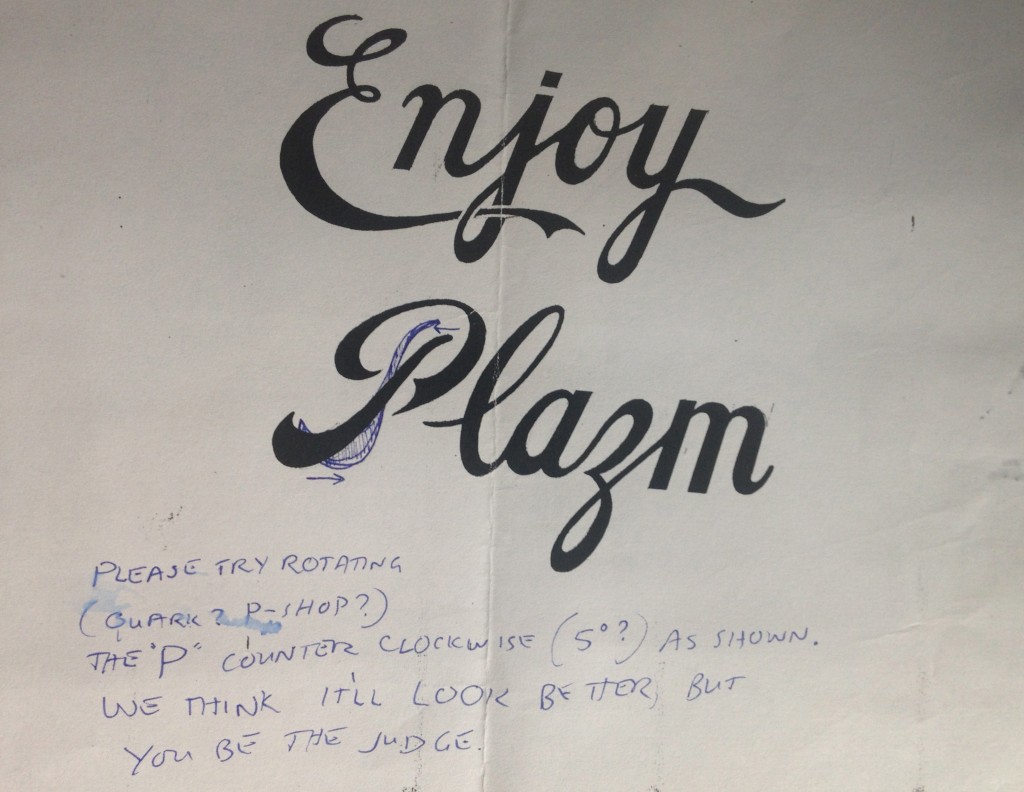 Enjoy
Plazm
PLEASE TRY ROTATING
(QUARK? P-SHOP?)
THE "P" COUNTER CLOCKWISE (5°?) AS SHOWN.
WE THINK IT'LL LOOK BETTER, BUT
YOU BE THE JUDGE.